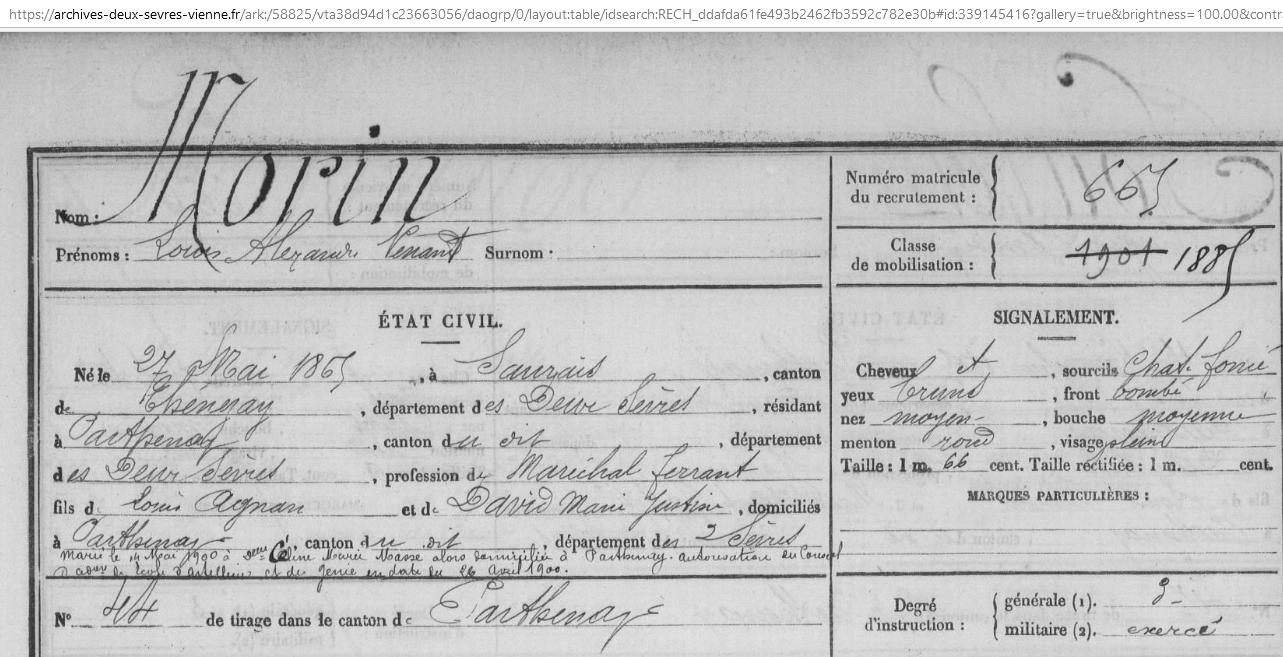 https://archives-deux-sevres-vienne.fr/ark:/58825/vta38d94d1c23663056/daogrp/0/layout:table/idsearch:RECH_ddafda61fe493b2462fb3592c782e30b#id:339145416?gallery=true&brightness=100.00&contr
Nom: Morin
Prénoms: Louis Alexandre Venant Surnom:
Numéro matricule du recrutement: 665
Classe de mobilisation: 1901 1885
ÉTAT CIVIL.
Né le 27 Mai 1865, à Saurais, canton
de Thenezay, département des Deux Sèvres, résidant
à Parthenay, canton du dit, département
des Deux Sèvres, profession de Maréchal ferrant
fils de Louis Agnan et de David Marie Justine, domiciliés
à Parthenay, canton du dit, département des 2 Sèvres
Marié le Mai 1900 à Céline Masse alors domiciliée à Parthenay. autorisation du Conseil
d'adon de l'école d'artillerie et du génie en date du 26 Avril 1900.
N° 44 de tirage dans le canton de Parthenay
SIGNALEMENT.
Cheveux et, sourcils Chat. foncé
yeux bruns, front bombé
nez moyen, bouche moyenne
menton rond, visage plein
Taille: 1 m. 66 cent. Taille rectifiée: 1 m. cent.
MARQUES PARTICULIÈRES:
Degré d'instruction: générale (1). 3
militaire (2). exercé